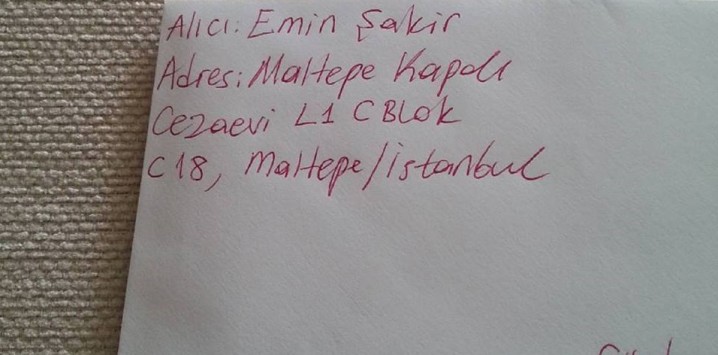 Alıcı: Emin Şakir
Adres: Maltepe Kapalı
Cezaevi L1 C Blok
C18, Maltepe/İstanbul